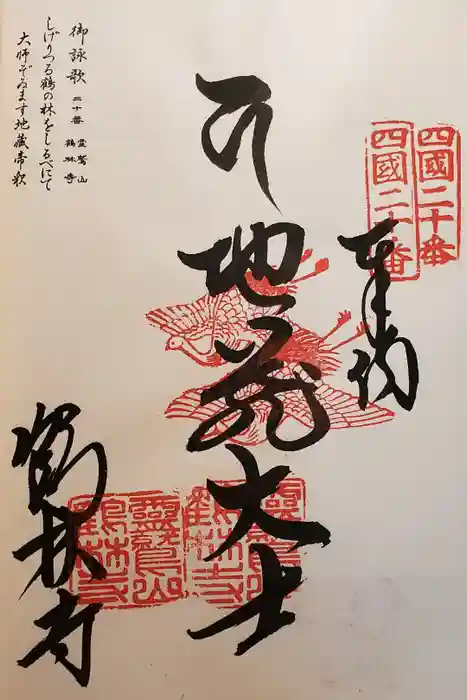 四國二十番
四國二十番
奉納
地蔵大士
靈鷲山
鶴林寺
鶴林寺
御詠歌 二十番 霊鷲山 鶴林寺
しげりつる鶴の林をしるべにて
大師ぞゐます地蔵帝釈